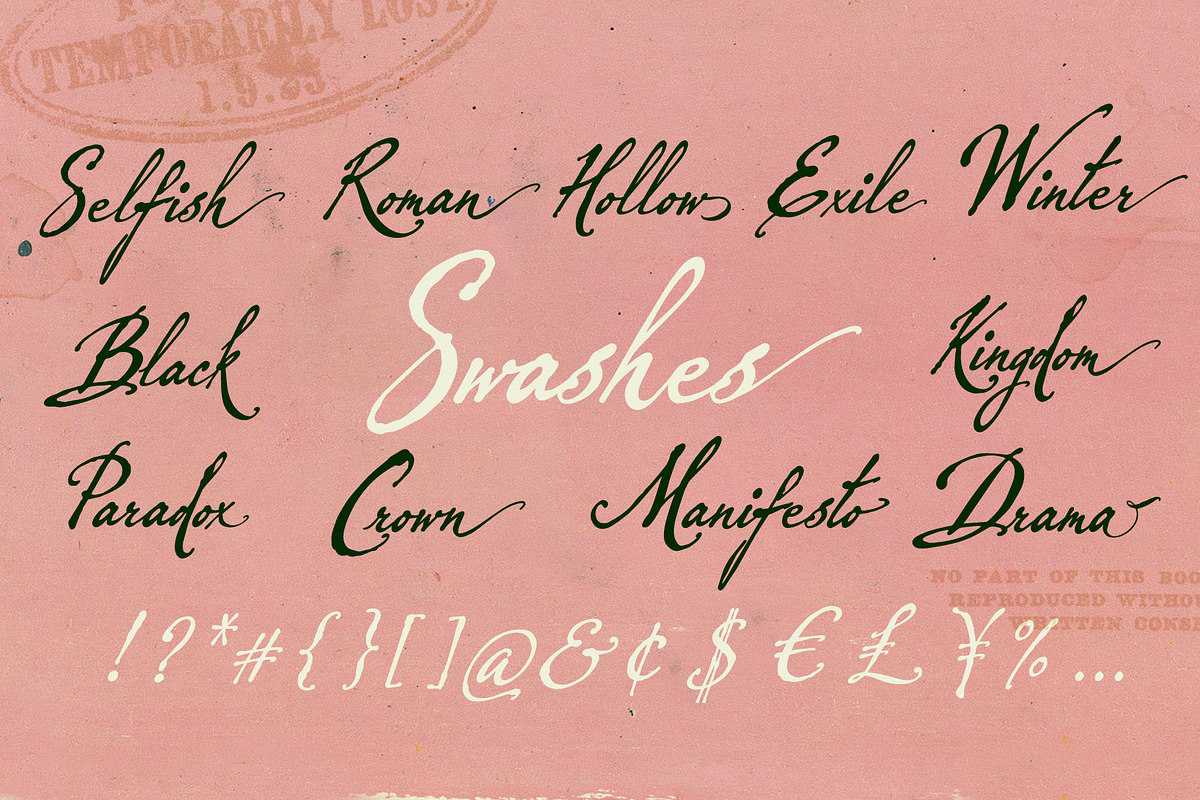 TEMPORARILY LOST
Selfish Roman Hollow Exile Winter
Black Swashes Kingdom
Paradox Crown Manifesto Drama
NO PART OF THIS
REPRODUCED
WRITTEN
! ? * # { } [ ] @ & ¢ $ € £ ¥ % ...